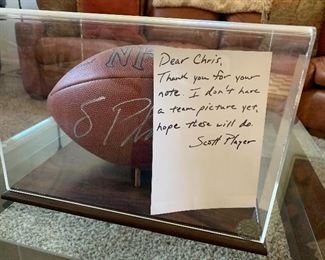 NF
S Pl
Dear Chris,
Thank you for your
note. I don't have
a team picture yet,
hope these will do.
Scott Player